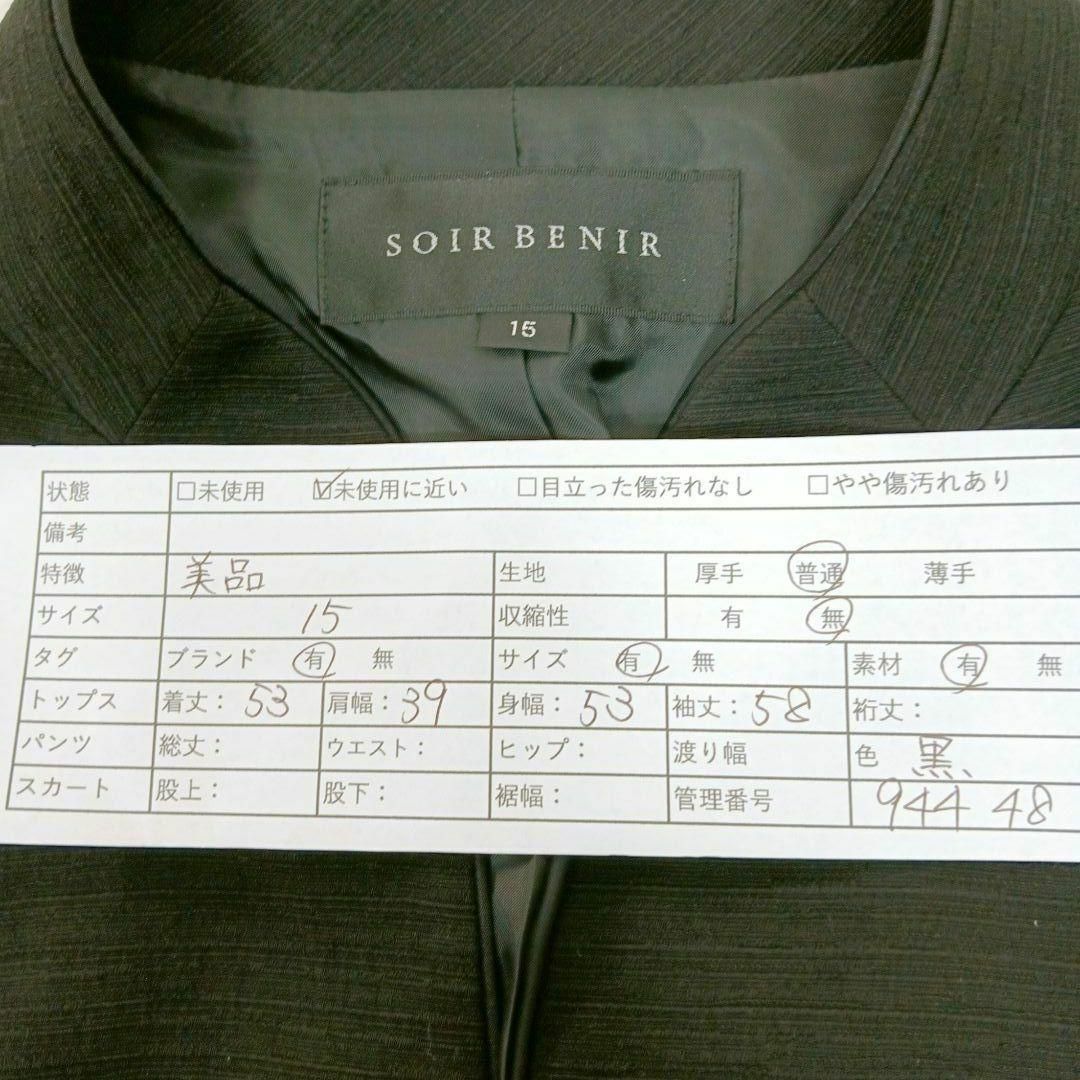 SOIR BENIR
15
状態 □未使用 ☑未使用に近い □目立った傷汚れなし □やや傷汚れあり
備考
特徴 美品 生地 厚手 普通 薄手
サイズ 15 収縮性 有 無
タグ ブランド 有 無 サイズ 有 無 素材 有 無
トップス 着丈：53 肩幅：39 身幅：53 袖丈：58 裄丈：
パンツ 総丈： ウエスト： ヒップ： 渡り幅 色 黒
スカート 股上： 股下： 裾幅： 管理番号 944 48